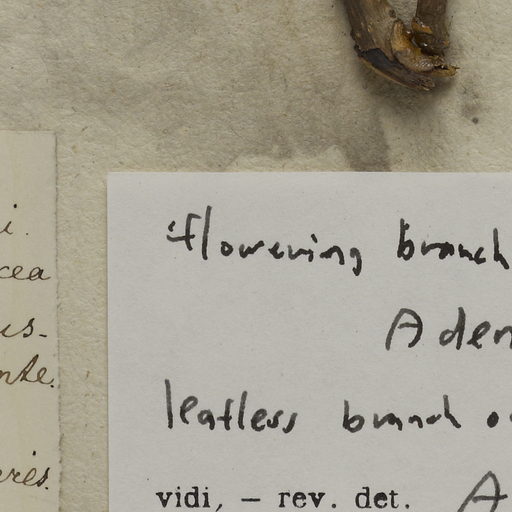 i.
cea
us-
nte.
eries.
flowering branch
Aden
leafless branch o
vidi, – rev. det. A